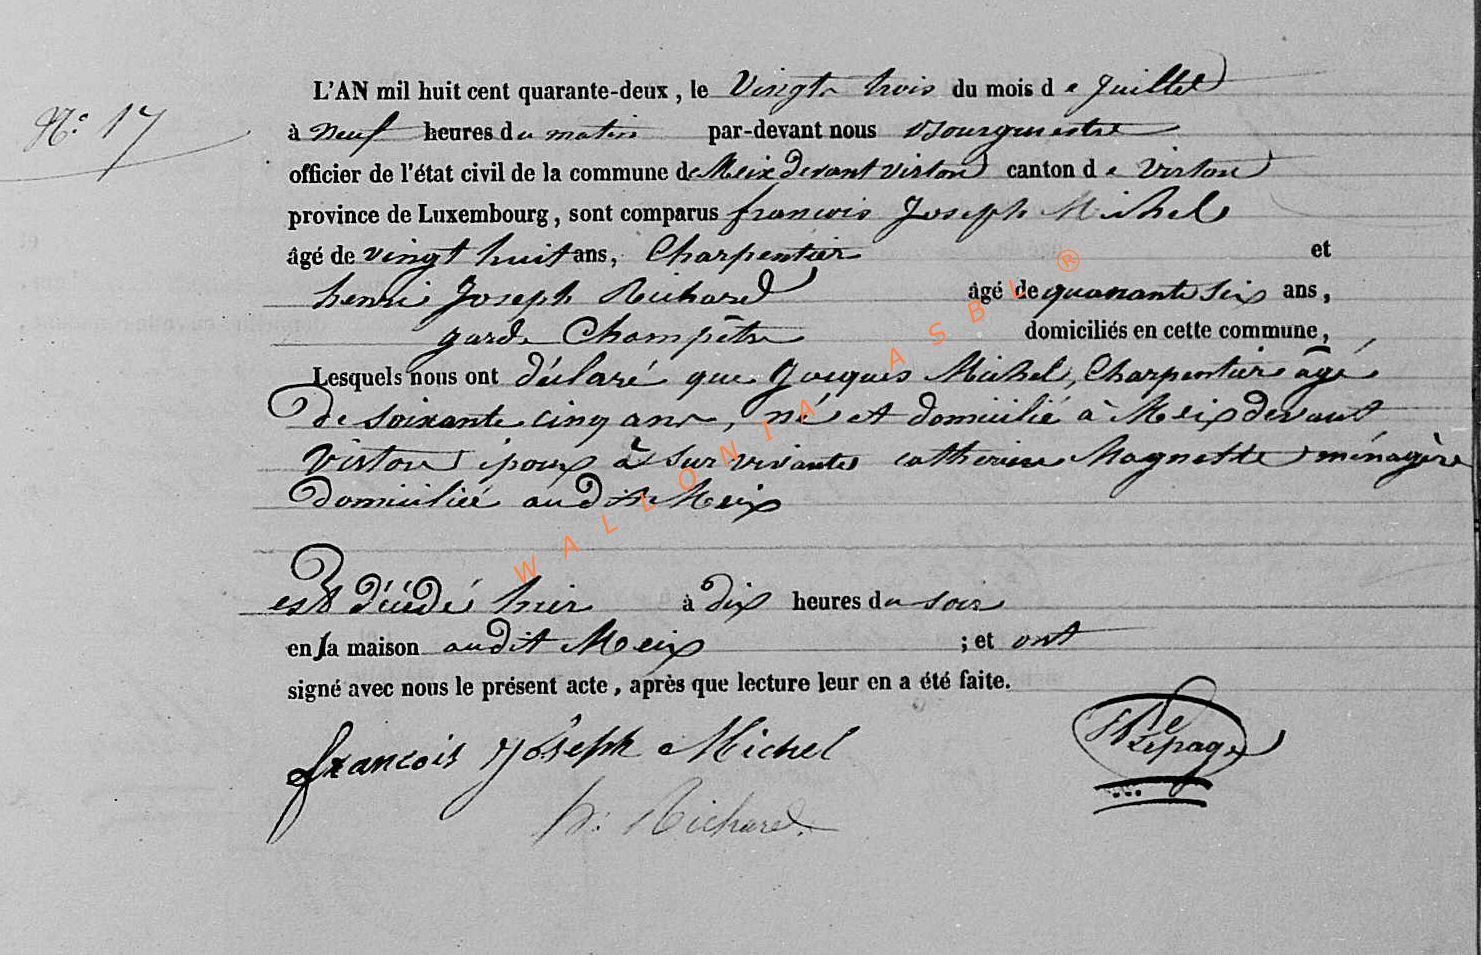 N.° 17
L'AN mil huit cent quarante-deux, le Vingt trois du mois de Juillet
à neuf heures du matin par-devant nous Bourgmestre
officier de l'état civil de la commune de Meix devant virton canton de Virton
province de Luxembourg, sont comparus francois Joseph Michel
âgé de vingt huit ans, Charpentier et
henri Joseph Richard âgé de quarante six ans,
garde Champêtre domiciliés en cette commune,
Lesquels nous ont déclaré que Jacques Michel, Charpentier âgé
de soixante cinq ans, né et domicilié à Meix devant
Virton époux à survivante catherine Magnette ménagère
domiciliée audit Meix
est décédé hier à dix heures du soir
en sa maison audit Meix ; et ont
signé avec nous le présent acte, après que lecture leur en a été faite.
françois joseph Michel
h: Richard.
Lepage
WALLONIA ASBL ®